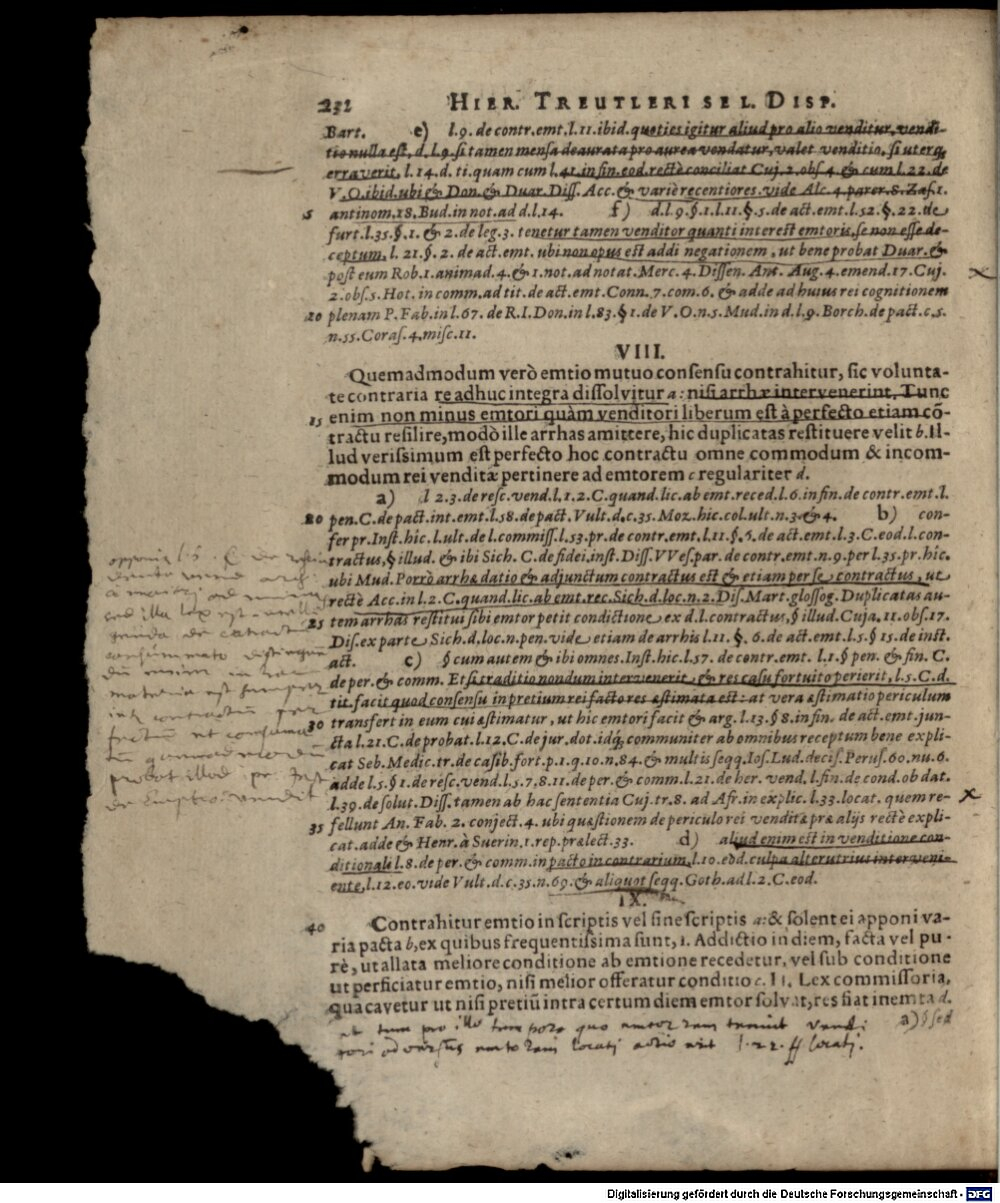 232 HIER. TREUTLERI SEL. DISP.
Bart. e) l.9. de contr.emt.l.11.ibid.quoties igitur aliud pro alio venditur, vendi-
tio nulla est, d.l.9. si tamen mensa deaurata pro aurea vendatur, valet venditio, si uterq;
erraverit, l.14.d. ti.quam cum l.41.in fin.eod.rectè conciliat Cuj.2.obs.4.& cum l.22.de
V.O.ibid.ubi & Don.& Duar.Diss. Acc.& variè recentiores.vide Alc.4.parer.8.Zas.1.
5 antinom.18.Bud.in not.ad d.l.14. f) d.l.9.§.1.l.11.§.5.de act.emt.l.52.§.22.de
furt.l.35.§.1.& 2.de leg.3. tenetur tamen venditor quanti interest emtoris, se non esse de-
ceptum, l. 21.§. 2. de act.emt. ubi non opus est addi negationem, ut bene probat Duar.&
post eum Rob.1.animad.4.& 1.not.ad notat. Merc.4.Dissen. Ant. Aug.4.emend.17.Cuj.
2.obs.5.Hot.in comm.ad tit.de act.emt.Conn.7.com.6.& adde ad huius rei cognitionem
10 plenam P.Fab.in l.67. de R.I.Don.in l.83.§ 1.de V.O.n.5.Mud.in d.l.9.Borch.de pact.c.5.
n.55.Coras.4.misc.11.
VIII.
Quemadmodum verò emtio mutuo consensu contrahitur, sic volunta-
te contraria re adhuc integra dissolvitur a: nisi arrhæ intervenerint. Tunc
15 enim non minus emtori quàm venditori liberum est à perfecto etiam cō-
tractu resilire, modò ille arrhas amittere, hic duplicatas restituere velit b. Il-
lud verissimum est perfecto hoc contractu omne commodum & incom-
modum rei venditæ pertinere ad emtorem c regulariter d.
a) l 2.3.de resc.vend.l.1.2.C.quand.lic.ab emt.reced.l.6.in fin.de contr.emt.l.
20 pen.C.de pact.int.emt.l.58.de pact.Vult.d.c.35.Moz.hic.col.ult.n.3.& 4. b) con-
fer pr.Inst.hic.l.ult.de l.commiss.l.53.pr.de contr.emt.l.11.§.5.de act.emt.l.3.C.eod.l.con-
tractus,§ illud.& ibi Sich. C.de fidei.inst.Diss.VVes.par.de contr.emt.n.9.per l.35.pr.hic.
ubi Mud. Porrò arrhæ datio & adjunctum contractus est & etiam per se contractus, ut
rectè Acc.in l.2.C.quand.lic.ab emt.rec.Sich.d.loc.n.2.Dis.Mart.glossog.Duplicatas au-
25 tem arrhas restitui sibi emtor petit condictione ex d.l.contractus,§ illud.Cuja.11.obs.17.
Dis.ex parte Sich.d.loc.n.pen.vide etiam de arrhis l.11.§.6.de act.emt.l.5.§ 15.de inst.
act. c) § cum autem & ibi omnes.Inst.hic.l.57. de contr.emt. l.1.§ pen. & fin. C.
de per.& comm. Etsi traditio nondum intervenerit, & res casu fortuito perierit, l.5.C.d.
tit.facit quod consensu in pretium rei facto res æstimata est: at vera æstimatio periculum
30 transfert in eum cui æstimatur, ut hic emtori facit & arg.l.13.§ 8.in fin.de act.emt.jun-
cta l.21.C.de probat.l.12.C.de jur.dot.idq; communiter ab omnibus receptum bene expli-
cat Seb.Medic.tr.de casib.fort.p.1.q.10.n.84.& multis seqq.Ios.Lud.decis.Perus.60.nu.6.
adde l.5.§ 1.de resc.vend.l.5.7.8.11.de per.& comm.l.21.de her. vend.l.fin.de cond.ob dat.
l.39.de solut.Diss.tamen ab hac sententia Cuj.tr.8. ad Afr.in explic.l.33.locat. quem re-
35 fellunt An.Fab.2.conject.4.ubi quæstionem de periculo rei venditæ præ alijs rectè expli-
cat.adde & Henr.à Suerin.1.rep.prælect.33. d) aliud enim est in venditione con-
ditionali l.8.de per.& comm.in pacto in contrarium, l.10.eod.culpa alterutrius interveni-
ente, l.12.eo.vide Vult.d.c.35.n.69.& aliquot seqq.Goth.ad l.2.C.eod.
IX.
40 Contrahitur emtio in scriptis vel sine scriptis a: & solent ei apponi va-
ria pacta b, ex quibus frequentissima sunt, 1. Addictio in diem, facta vel pu-
rè, ut allata meliore conditione ab emtione recedetur, vel sub conditione
ut perficiatur emtio, nisi melior offeratur conditio c. II. Lex commissoria,
qua cavetur ut nisi pretiū intra certum diem emtor solvat, res fiat inemta d.
a) § sed
et tum pro illo tempore quo emtor rem tenuit vendi
tori adversus emtorem locati actio erit l. 22. ff locati.
Digitalisierung gefördert durch die Deutsche Forschungsgemeinschaft - DFG